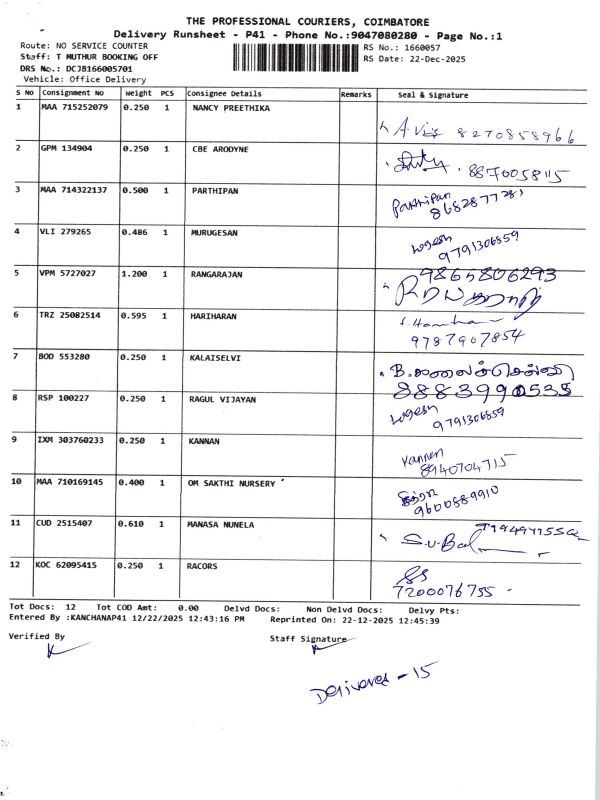 THE PROFESSIONAL COURIERS, COIMBATORE
Delivery Runsheet - P41 - Phone No.:9047080280 - Page No.:1
Route: NO SERVICE COUNTER
RS No.: 1660057
Staff: T MUTHUR BOOKING OFF
RS Date: 22-Dec-2025
DRS No.: DCJB166005701
Vehicle: Office Delivery
S NO Consignment No Weight PCS Consignee Details Remarks Seal & Signature
1 MAA 715252079 0.250 1 NANCY PREETHIKA
8270858966
2 GPM 134904 0.250 1 CBE ARODYNE
8870058115
3 MAA 714322137 0.500 1 PARTHIPAN
Parthipan
8682877281
4 VLI 279265 0.486 1 MURUGESAN
Logesh
9791306859
5 VPM 5727027 1.200 1 RANGARAJAN
9865806293
6 TRZ 25082514 0.595 1 HARIHARAN
9787907854
7 BOD 553280 0.250 1 KALAISELVI
B. கலைச்செல்வி
8883990535
8 RSP 100227 0.250 1 RAGUL VIJAYAN
Logesh
9791306859
9 IXM 303760233 0.250 1 KANNAN
Kannan
8940704715
10 MAA 710169145 0.400 1 OM SAKTHI NURSERY
9600889910
11 CUD 2515407 0.610 1 MANASA NUNELA
12 KOC 62095415 0.250 1 RACORS
7200076755
Tot Docs: 12 Tot COD Amt: 0.00 Delvd Docs: Non Delvd Docs: Delvy Pts:
Entered By :KANCHANAP41 12/22/2025 12:43:16 PM Reprinted On: 22-12-2025 12:45:39
Verified By Staff Signature
Delivered - 15